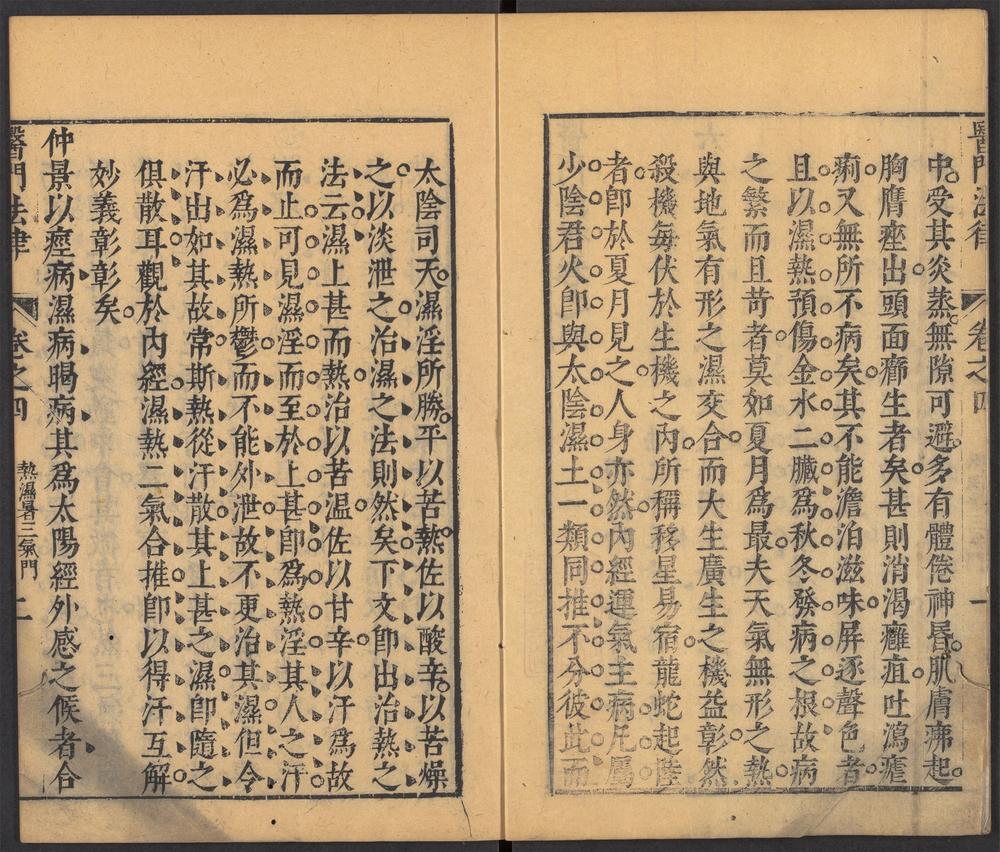 醫門法律 卷之四 一
中受其炎蒸無隙可避多有體倦神昏肌膚疿起
胸膺痤出頭面癤生者矣甚則消渴癰疽吐瀉瘧
痢又無所不病矣其不能澹泊滋味屏逐聲色者
且以濕熱預傷金水二臟為秋冬發病之根故病
之繁而且苛者莫如夏月為最夫天氣無形之熱
與地氣有形之濕交合而大生廣生之機益彰然
殺機每伏於生機之內所稱移星易宿龍蛇起陸
者卽於夏月見之人身亦然內經運氣主病凡屬
少陰君火卽與太陰濕土一類同推不分彼此而
太陰司天濕淫所勝平以苦熱佐以酸辛以苦燥
之以淡泄之治濕之法則然矣下文卽出治熱之
法云濕上甚而熱治以苦溫佐以甘辛以汗為故
而止可見濕淫而至於上甚卽為熱淫其人之汗
必為濕熱所鬱而不能外泄故不更治其濕但令
汗出如其故常斯熱從汗散其上甚之濕卽隨之
俱散耳觀於內經濕熱二氣合推卽以得汗互解
妙義彰彰矣
仲景以痙病濕病暍病其為太陽經外感之候者合
醫門法律 卷之四 熱濕暑三氣門 二